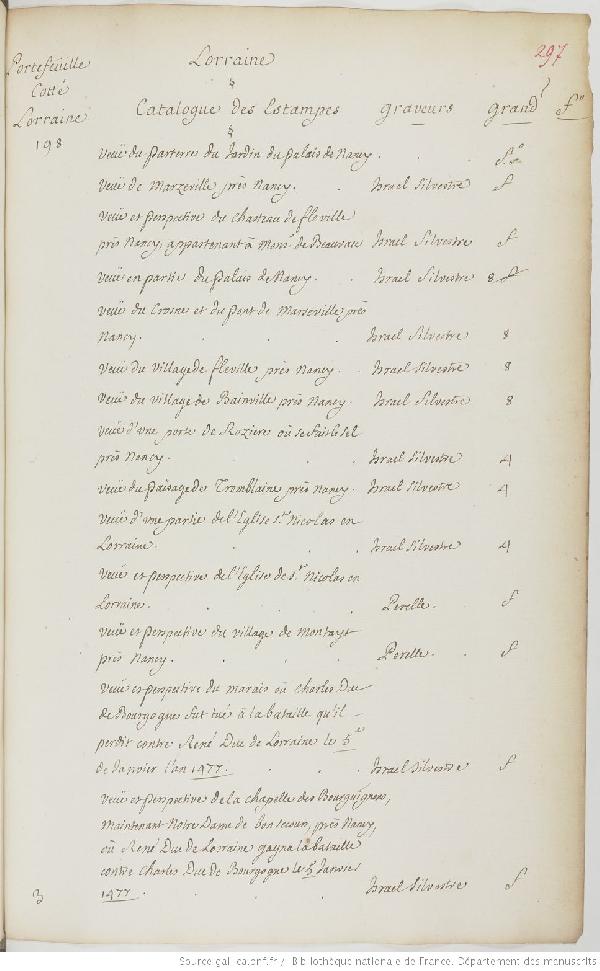 297
Portefeüille
Cotté
Lorraine
198
Lorraine
Catalogue des Estampes graveurs grand.r f.o
veuë du parterre du Jardin du palais de Nancy. f.o
veuë de Marzeville près Nancy. Israel Silvestre f
veuë et perspective du chasteau de fleville
près Nancy, appartenant à Mons.r de Beauvau Israel Silvestre f
veuë en partie du palais de Nancy. Israel Silvestre 8 f
veuë du Crosne et du pont de Marzeville près
Nancy. Israel Silvestre 8
veuë du village de fleville près Nancy. Israel Silvestre 8
veuë du village de Bainville près Nancy. Israel Silvestre 8
veuë d'une porte de Roziere où se fait le sel
près Nancy. Israel Silvestre 4
veuë du païsage de Tromblaine près Nancy. Israel Silvestre 4
veuë d'une partie de l'Eglise s.t Nicolas en
Lorraine. Israel Silvestre 4
veuë et perspective de l'Eglise de s.t Nicolas en
Lorraine. Perelle. f
veuë et perspective du village de
près Nancy. Perelle. f
veuë et perspective du marais où Charles Duc
de Bourgogne fut tué à la bataille qu'il
perdit contre René Duc de Lorraine le 5
de Janvier l'an 1477. Israel Silvestre f
veuë et perspective de la chapelle des Bourguignons,
maintenant Notre Dame de bon secours, près Nancy,
où René Duc de Lorraine gagna la bataille
contre Charles Duc de Bourgogne le 5 Janvier
1477. Israel Silvestre f
3
Source gallica.bnf.fr / Bibliothèque nationale de France. Département des manuscrits